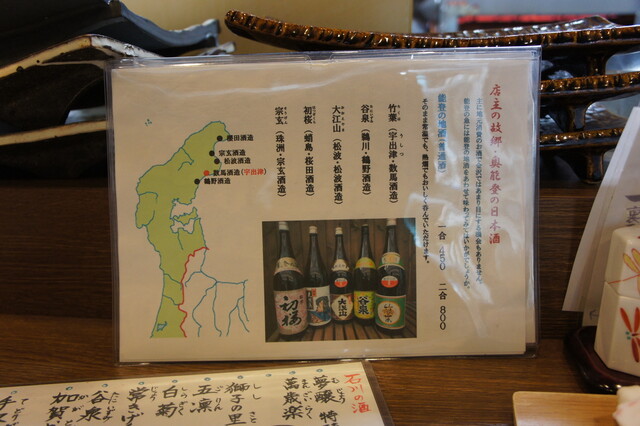 店主の故郷・奥能登の日本酒
能登の地酒(普通酒) 一合 450 二合 800
そのまま常温でも、熱燗でもおいしく呑んでいただけます。
竹葉(宇出津・数馬酒造)
谷泉(鶴川・鶴野酒造)
大江山(松波・松波酒造)
初桜(蛸島・桜田酒造)
宗玄(珠洲・宗玄酒造)
櫻田酒造
宗玄酒造
松波酒造
数馬酒造(宇出津)
鶴野酒造
初桜
大江山
谷泉
竹葉
石川の酒
夢醸
萬歳楽
獅子の里
五凛
白菊
常きげん
谷泉
加賀